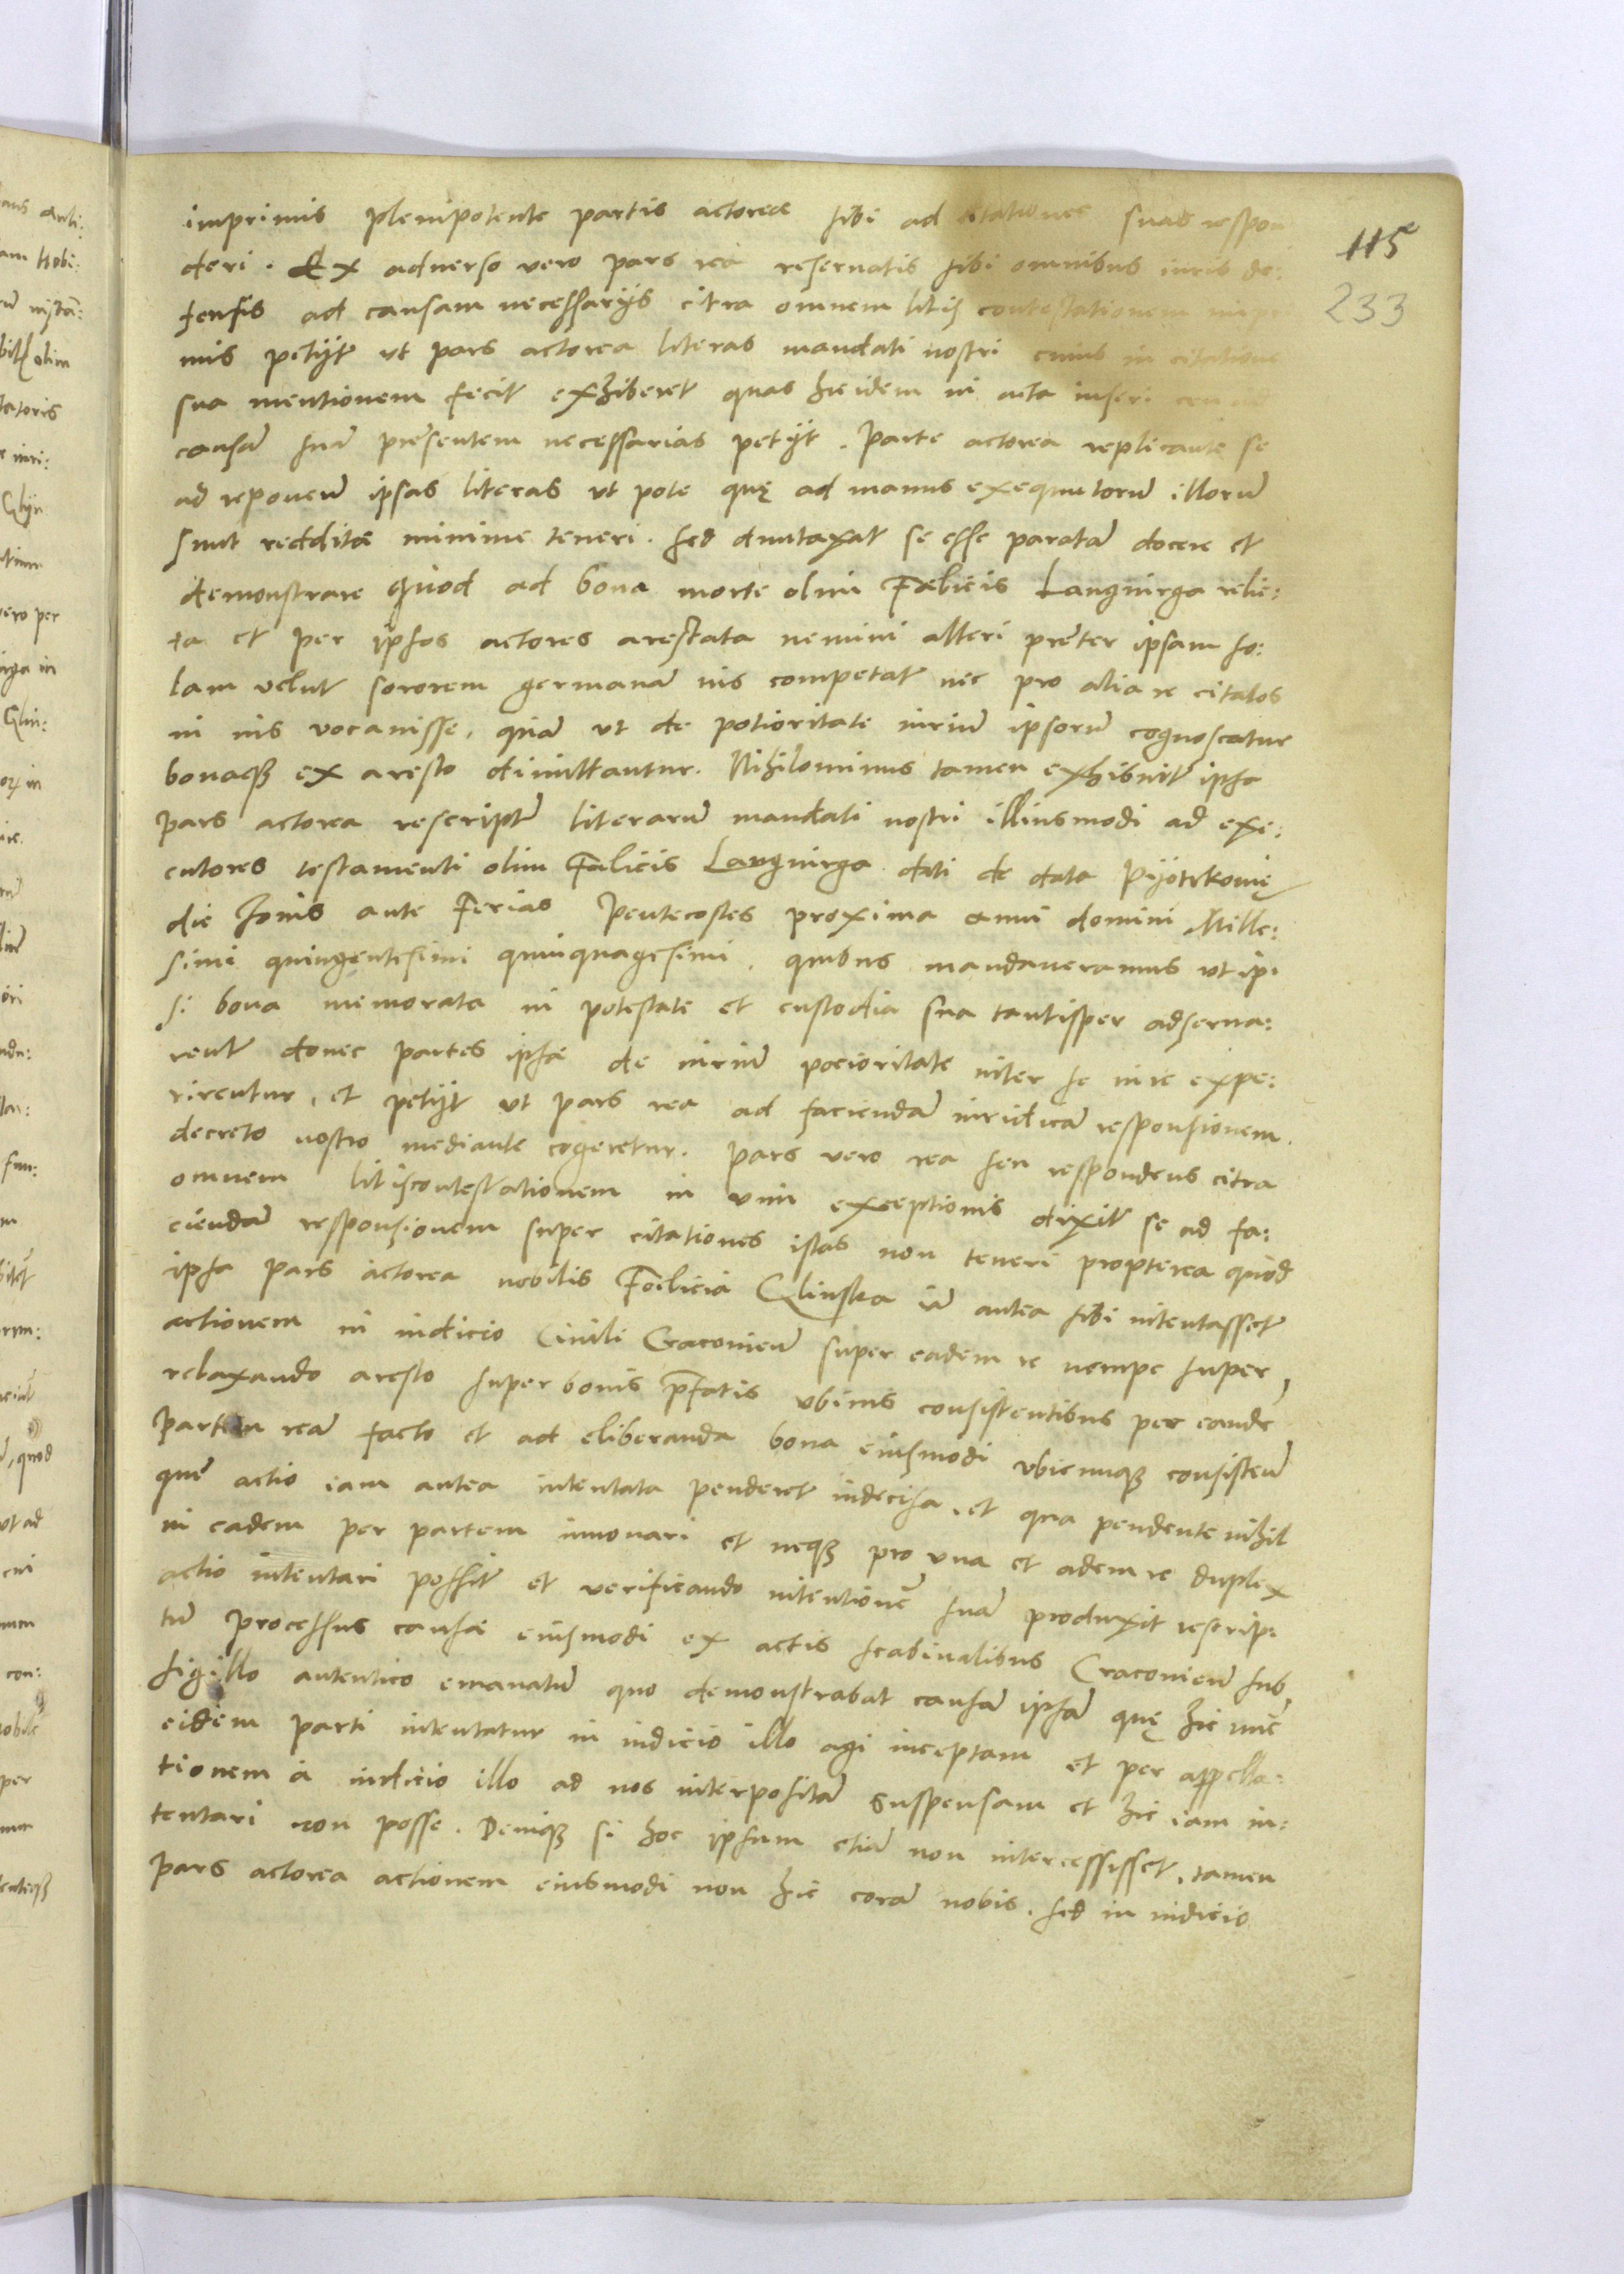 imprimis plenipotente partis actoreæ sibi ad citationes suas respon
deri. Ex aduerso vero pars rea reseruatis sibi omnibus iuris de:
fensis ad causam necessarijs citra omnem litis contestationem impri
mis petijt vt pars actorea literas mandati nostri cuius in citatione
sua mentionem fecit exhiberet quas hic idem in acta inseri ceu ad
causã suã presentem necessarias petijt. Parte actorea replicante se
ad reponenũ ipsas literas vt pote quę ad manus exequutorũ illorũ
sunt redditæ minime teneri. sed duntaxat se esse paratã docere et
demonstrare quod ad bona morte olim Fælicis Langnirga relic:
ta et per ipsos actores arestata nemini alteri preter ipsam so:
lam velut sororem germanã ius competat nec pro alia re citatos
in ius vocauisse, quã vt de potioritate iuriũ ipsorũ cognoscatur
bonaqȝ ex aresto dimittantur. Nihilominus tamen exhibuit ipsa
pars actorea rescriptũ literarũ mandati nostri illiusmodi ad exe:
cutores testamenti olim Fælicis Langnirga dati de data Pijotrkouię
die Jouis ante Ferias Pentecostes proxima anni domini Mille:
simi quingentesimi quinquagesimi, quibus mandaueramus vt ip:
si bona memorata in potestate et custodia sua tantisper adserua:
rent donec partes ipsæ de iuriũ pocioritate inter se iure expe:
rirentur, et petijt vt pars rea ad faciendã iuridicã responsionem
decreto nostro mediante cogeretur. Pars vero rea seu respondens citra
omnem litiscontestationem in vim exceptionis dixit se ad fa:
ciendã responsionem super citationes istas non teneri propterea quod
ipsa pars actorea nobilis Foelicia Glinska iã antea sibi intentasset
actionem in iudicio Ciuili Cracouieñ super eadem re nempe super
relaxando aresto super bonis pfatis vbiuis consistentibus per eandẽ
partem reã facto et ad eliberanda bona eiusmodi vbicunqȝ consisteñ
quẽ actio iam antea intentata penderet indecisa, et qua pendente nihil
in eadem per partem innouari et neqȝ pro vna et adem re duplex
actio intentari possit et verificando intentionẽ suã produxit rescrip:
tũ processus causæ eiusmodi ex actis scabinalibus Cracouieñ sub
sigillo autentico emanatũ quo demonstrabat causã ipsã quę hic nũc
eidem parti intentatur in iudicio illo agi inceptam et per appella:
tionem à iudicio illo ad nos interpositã suspensam et hic iam in:
tentari non posse. Deniqȝ si hoc ipsum etiã non intercessisset, tamen
pars actorea actionem eiusmodi non hic corã nobis. sed in iudicio
115
233